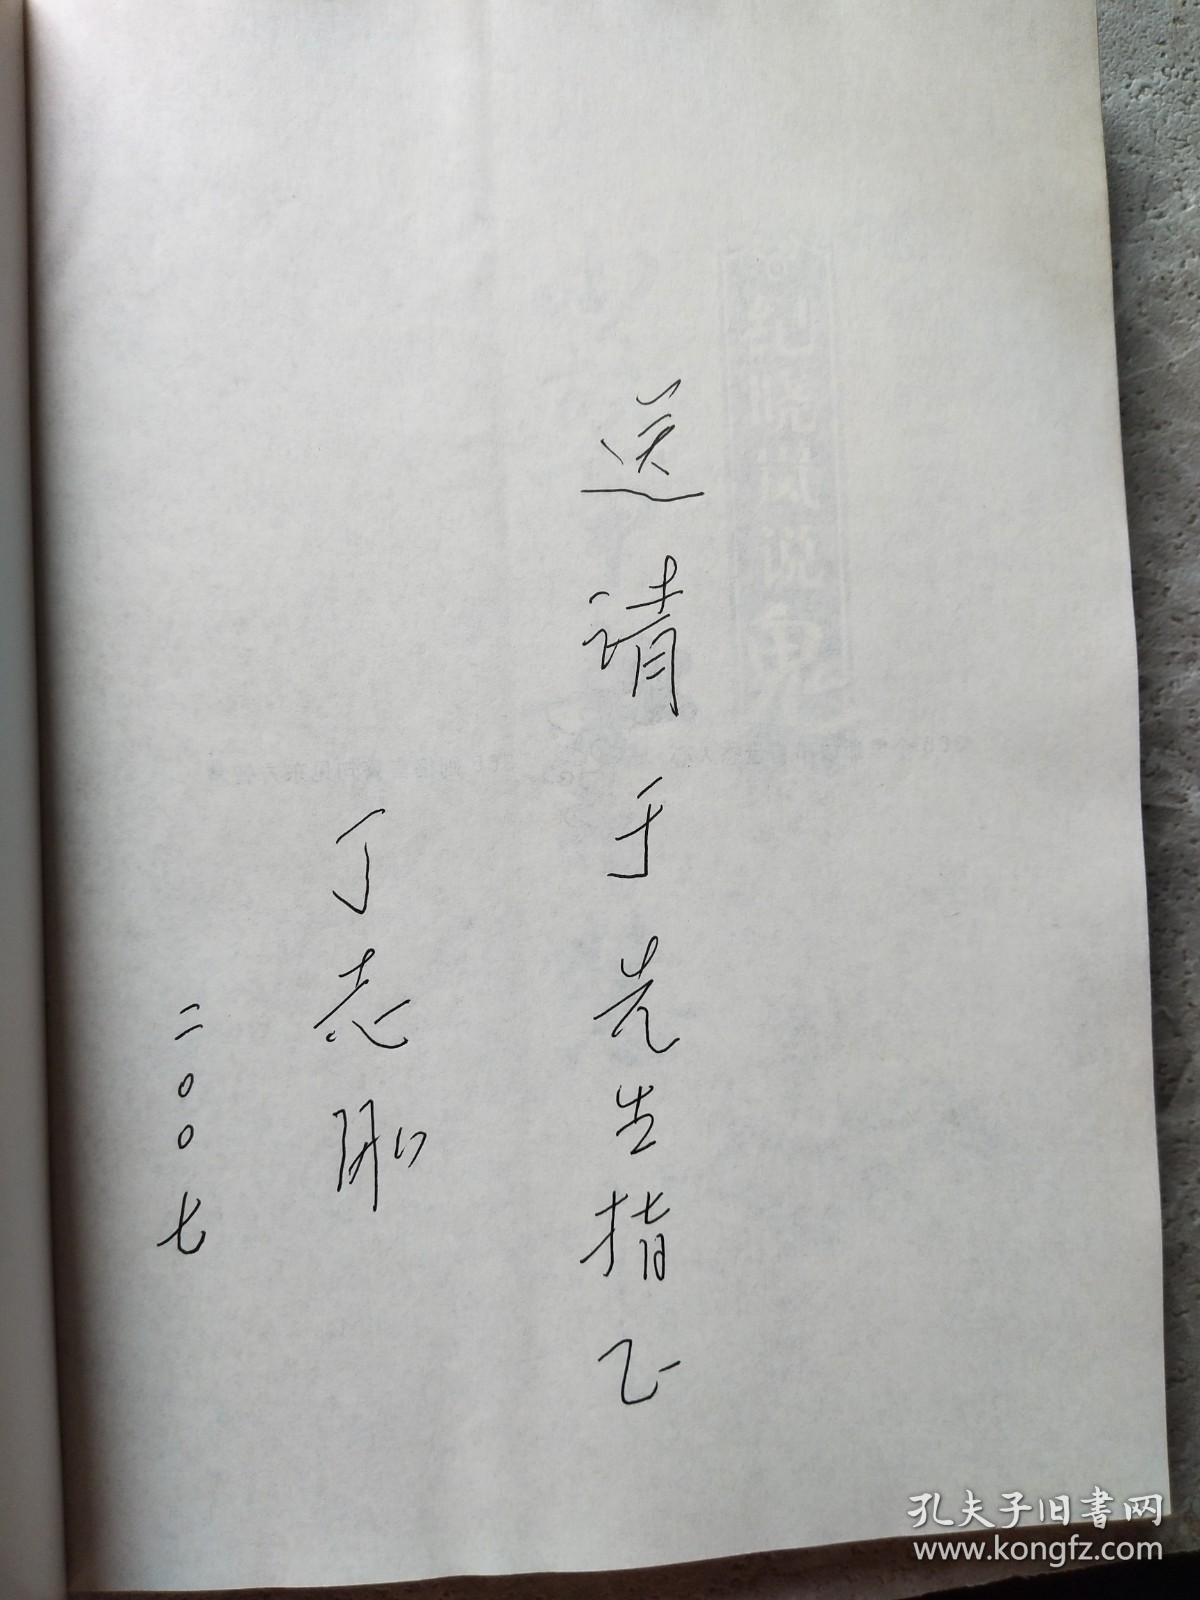 送请于先生指正
丁志刚
二〇〇七
孔夫子旧书网
www.kongfz.com